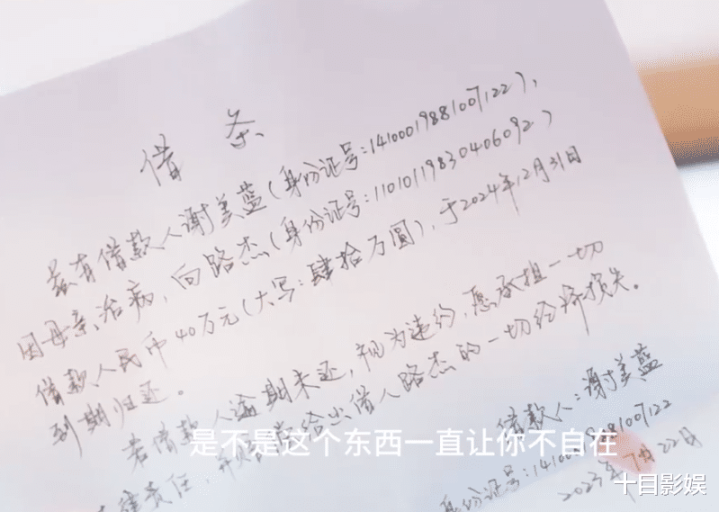 借条
兹有借款人谢美蓝(身份证号:14100019881007122),
因母亲治病,向路杰(身份证号:11010119830406092)
借款人民币40万元(大写:肆拾万圆),于2024年12月31日
到期归还。
若借款人逾期未还,视为违约,愿承担一切
责任,并 给出借人路杰的一切经济损失。
借款人:谢美蓝
身份证号:14100019881007122
2023年7月22日
是不是这个东西一直让你不自在
十目影娱